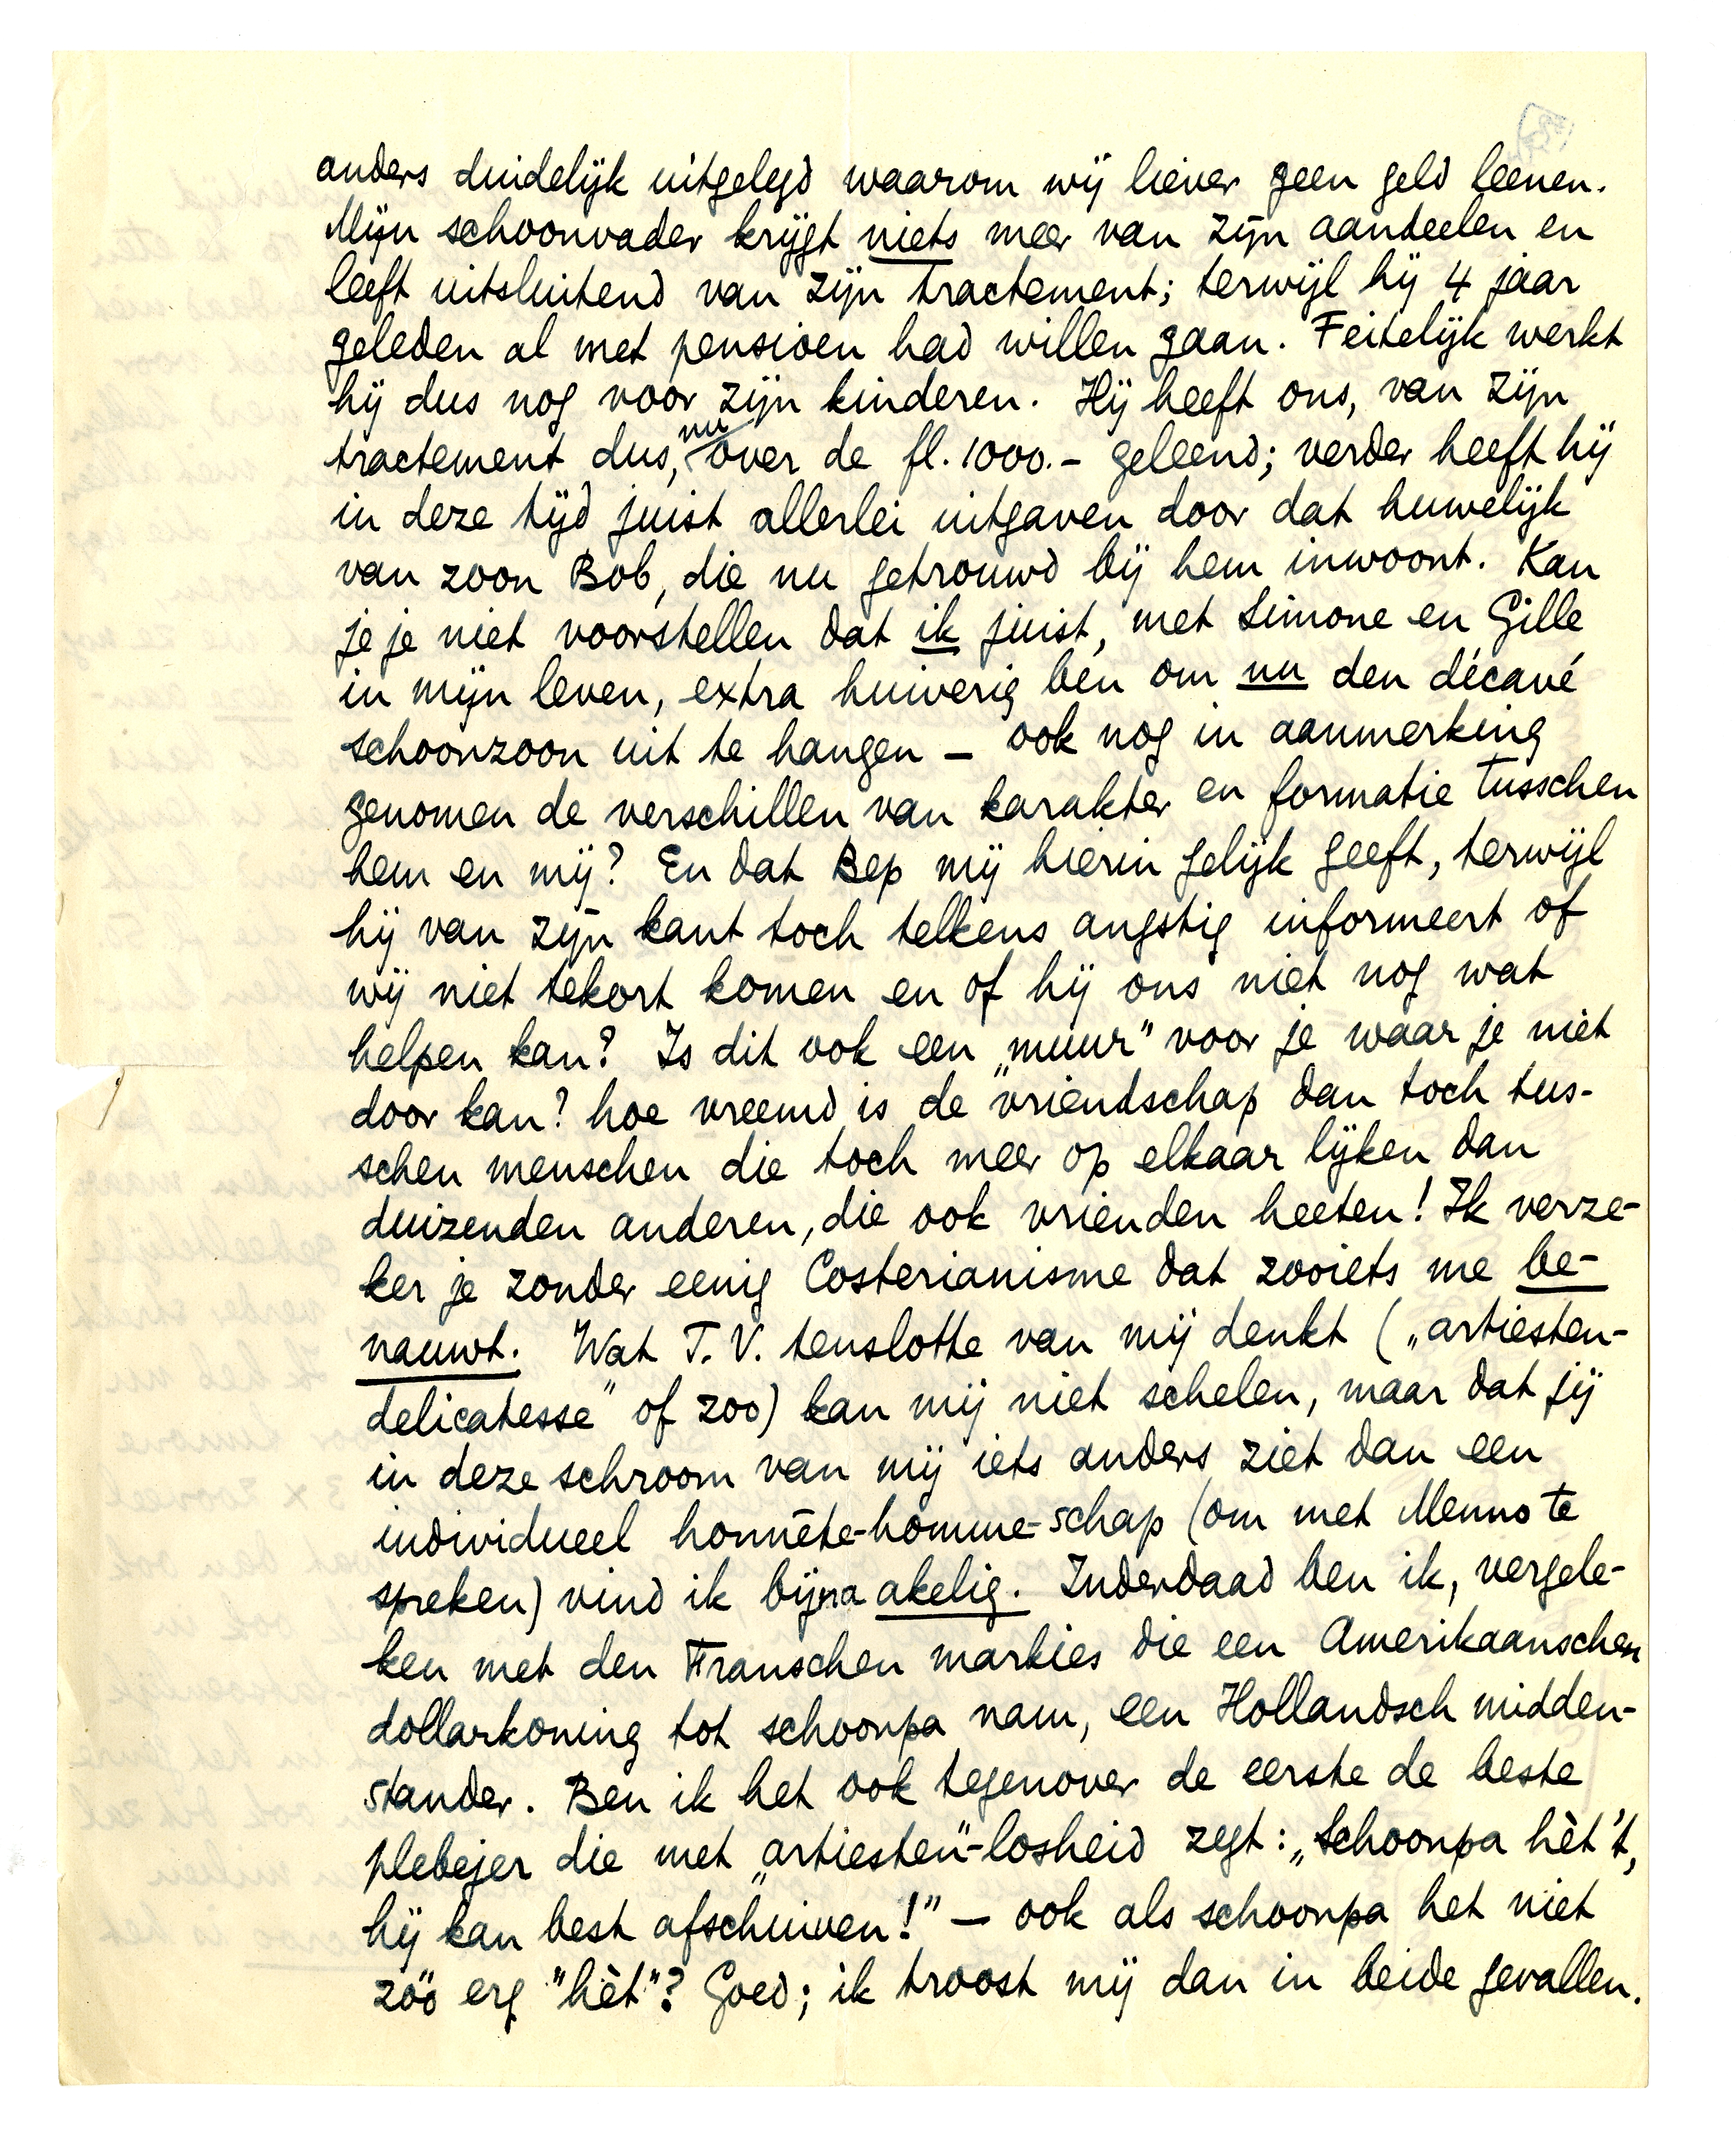 anders duidelijk uitgelegd waarom wij liever geen geld leenen.
Mijn schoonvader krijgt niets meer van zijn aandeelen en
leeft uitsluitend van zijn tractement; terwijl hij 4 jaar
geleden al met pensioen had willen gaan. Feitelijk werkt
hij dus nog voor zijn kinderen. Hij heeft ons, van zijn
tractement dus, nu over de fl. 1000.- geleend; verder heeft hij
in deze tijd juist allerlei uitgaven door dat huwelijk
van zoon Bob, die nu getrouwd bij hem inwoont. Kan
je je niet voorstellen dat ik juist, met Simone en Gille
in mijn leven, extra huiverig ben om nu den décavé
schoonzoon uit te hangen – ook nog in aanmerking
genomen de verschillen van karakter en formatie tusschen
hem en mij? En dat Bep mij hierin gelijk geeft, terwijl
hij van zijn kant toch telkens angstig informeert of
wij niet tekort komen en of hij ons niet nog wat
helpen kan? Is dit ook een „muur” voor je waar je niet
door kan? hoe vreemd is de vriendschap dan toch tus-
schen menschen die toch meer op elkaar lijken dan
duizenden anderen, die ook vrienden heeten! Ik verze-
ker je zonder eenig Costerianisme dat zooiets me be-
nauwt. Wat T.V. tenslotte van mij denkt („artiesten-
delicatesse” of zoo) kan mij niet schelen, maar dat jij
in deze schroom van mij iets anders ziet dan een
individueel honnête-homme-schap (om met Menno te
spreken) vind ik bijna akelig. Inderdaad ben ik, vergele-
ken met den Franschen markies die een Amerikaanschen
dollarkoning tot schoonpa nam, een Hollandsch midden-
stander. Ben ik het ook tegenover de eerste de beste
plebejer die met „artiesten”-losheid zegt: „Schoonpa hèt 't,
hij kan best afschuiven!” – ook als schoonpa het niet
zóó erg "hèt"? Goed; ik troost mij dan in beide gevallen.